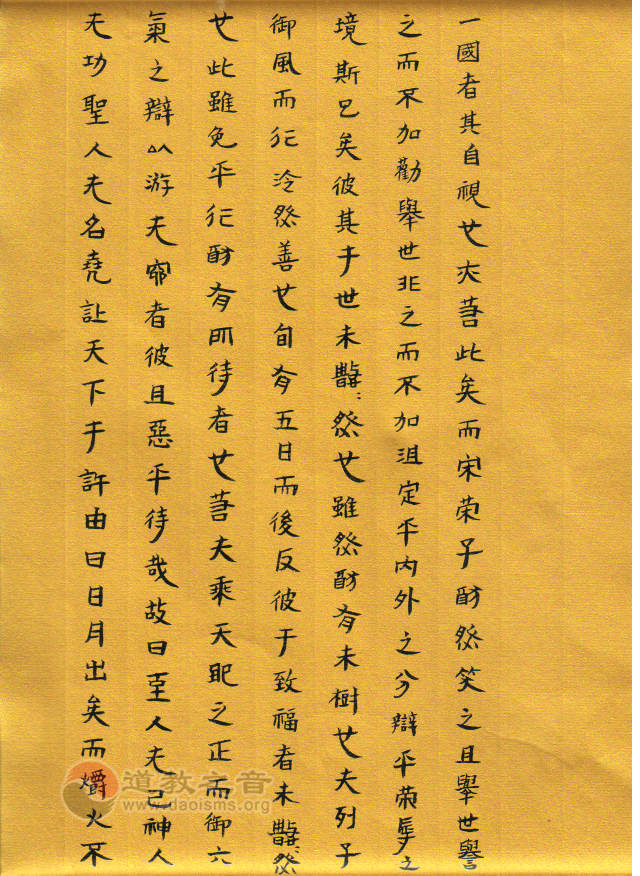 一國者其自視也亦若此矣而宋荣子猶然笑之且舉世譽
之而不加勸舉世非之而不加沮定乎内外之分辯乎荣辱之
境斯已矣彼其于世未數:然也雖然猶有未樹也夫列子
御風而行泠然善也旬有五日而後反彼于致福者未數:然
也此雖免乎行猶有所待者也若夫乘天地之正而御六
氣之辯以游无窮者彼且惡乎待哉故曰至人无己神人
无功聖人无名堯讓天下于許由曰日月出矣而爝火不
道教之音
www.daoisms.org